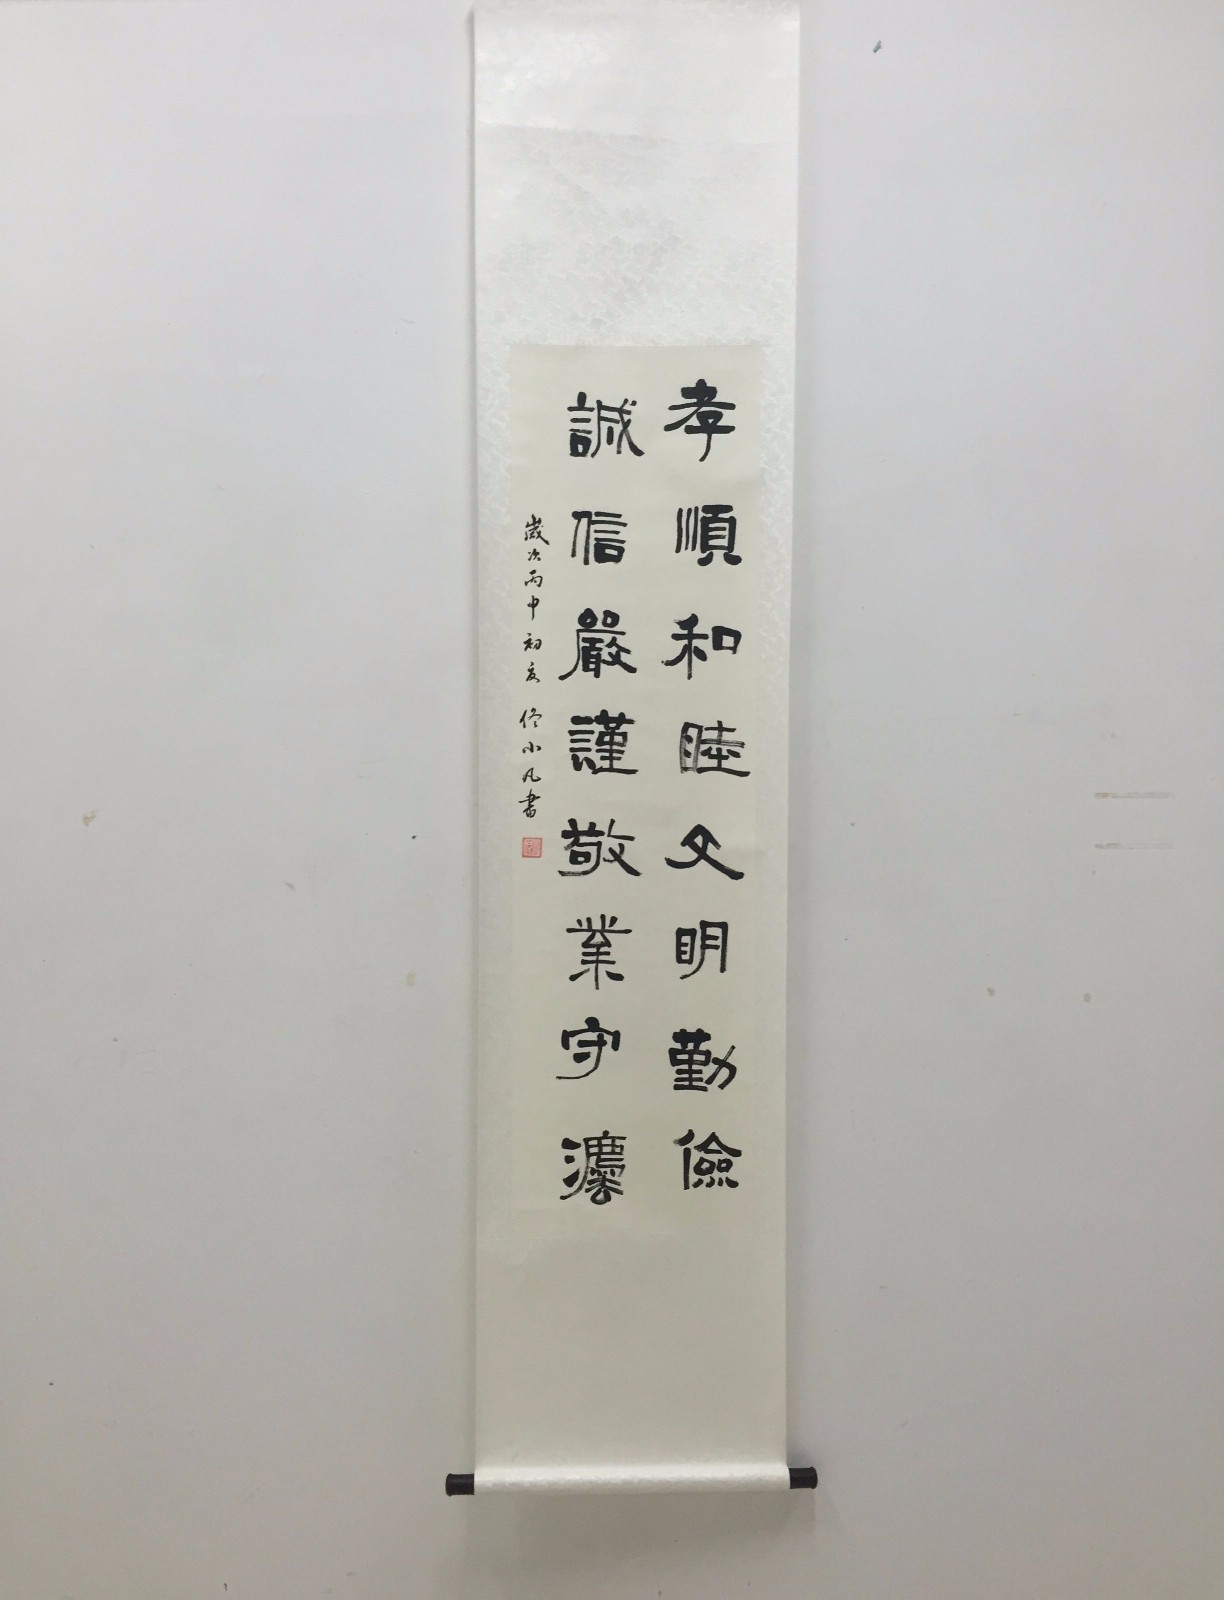 孝順和睦文明勤儉
誠信嚴謹敬業守灋
歲次丙申初夏佟小凡書